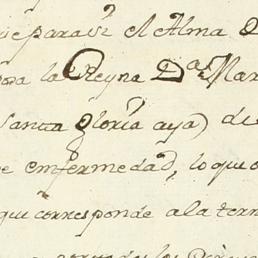 el Alma
la Reyna D.ª Mar
Santa Gloria aya) de
enfermedad, lo que
que corresponde a la